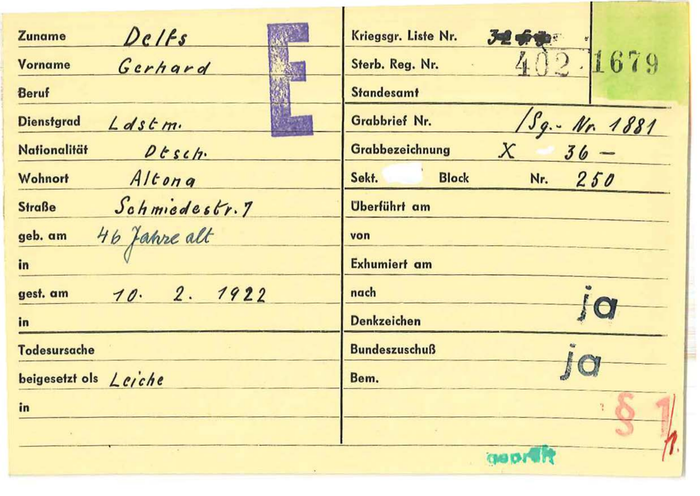 Zuname Delfs
Vorname Gerhard
E
Beruf
Dienstgrad Ldstm.
Nationalität Dtsch.
Wohnort Altona
Straße Schmiedestr. 7
geb. am 46 Jahre alt
in
gest. am 10. 2. 1922
in
Todesursache
beigesetzt als Leiche
in
Kriegsgr. Liste Nr.
Sterb. Reg. Nr. 402 1679
Standesamt
Grabbrief Nr. /Sg.- Nr. 1881
Grabbezeichnung X 36 –
Sekt. Block Nr. 250
Überführt am
von
Exhumiert am
nach ja
Denkzeichen
Bundeszuschuß ja
Bem.
§ 1
geprüft